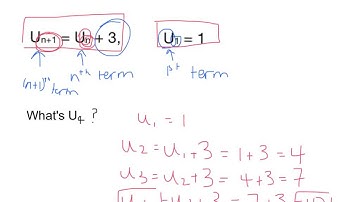 Uₙ₊₁ = Uₙ + 3, U₁ = 1
(n+1)ᵗʰ term nᵗʰ term 1ˢᵗ term
What's U₄ ?
u₁ = 1
u₂ = u₁ + 3 = 1 + 3 = 4
u₃ = u₂ + 3 = 4 + 3 = 7